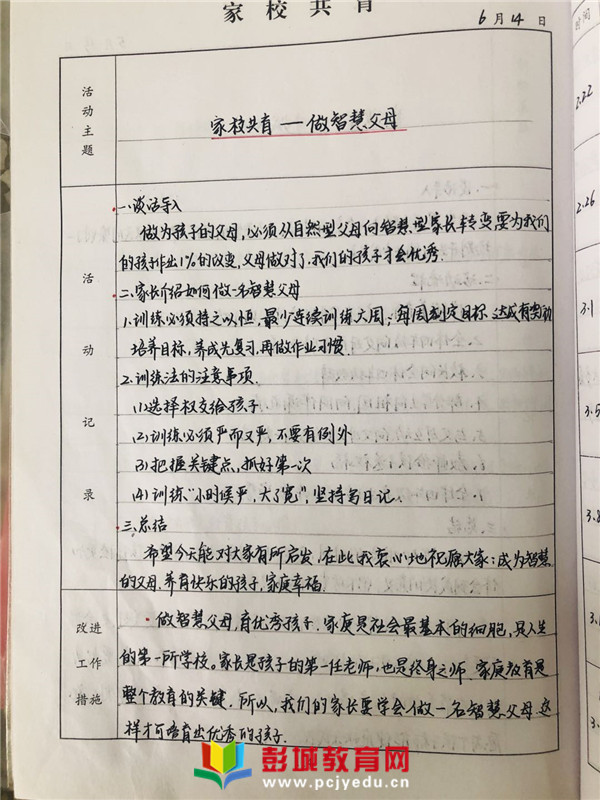 家校共育
6月14日
活动主题
家校共育——做智慧父母
活动记录
一.谈话导入
做为孩子的父母,必须从自然型父母向智慧型家长转变要为我们
的孩子作出1%的改变,父母做对了.我们的孩子才会优秀.
二.家长介绍如何做一名智慧父母
1.训练必须持之以恒,最少连续训练六周;每周制定目标,达成有奖励
培养目标,养成先复习,再做作业习惯.
2.训练法的注意事项.
(1)选择权交给孩子
(2)训练必须严而又严,不要有例外
(3)把握关键点,抓好第一次
(4)训练"小时侯严,大了宽",坚持写日记.
三.总结
希望今天能对大家有所启发,在此我衷心地祝愿大家:成为智慧
的父母.养育快乐的孩子,家庭幸福.
改进工作措施
做智慧父母,育优秀孩子.家庭是社会最基本的细胞,是人生
的第一所学校。家长是孩子的第一任老师,也是终身之师.家庭教育是
整个教育的关键.所以,我们的家长要学会做一名智慧父母.这
样才可培育出优秀的孩子.
时间
2.22
2.26
3.1
3.5
彭城教育网
www.pcjyedu.cn